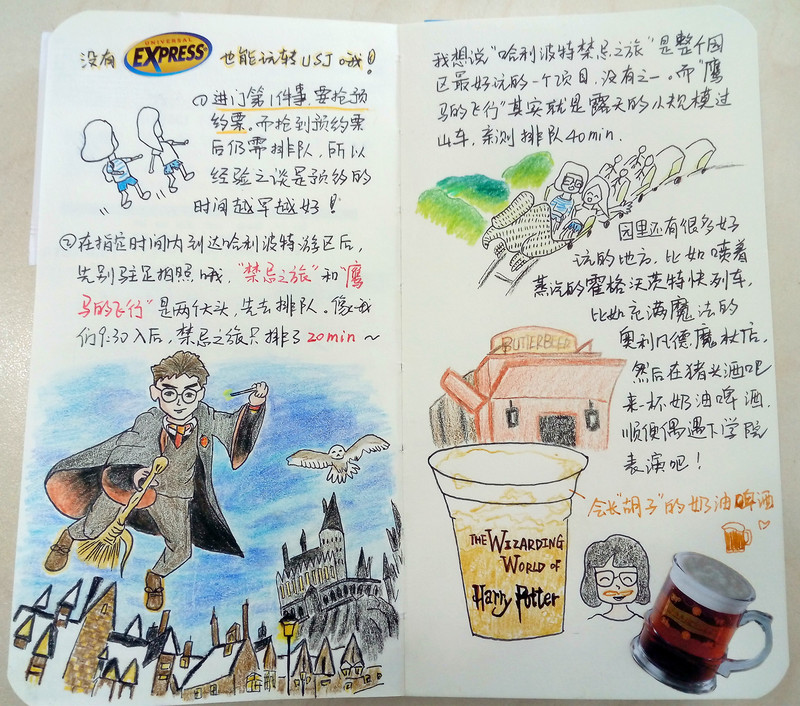 没有 UNIVERSAL EXPRESS 也能玩转USJ哦!
①进门第1件事,要抢预
约票。而抢到预约票
后仍需排队,所以
经验之谈是预约的
时间越早越好!
②在指定时间内到达哈利波特游区后,
先别驻足拍照哦,"禁忌之旅"和"鹰
马的飞行"是两个大头,先去排队。像我
们9:30入后,禁忌之旅只排了20min~
我想说"哈利波特禁忌之旅"是整个园
区最好玩的一个项目,没有之一。而"鹰
马的飞行"其实就是露天的小规模过
山车,亲测排队40min.
园里还有很多好
玩的地方,比如喷着
蒸汽的霍格沃茨特快列车,
比如充满魔法的
奥利凡德魔杖店,
然后在猪头酒吧
来一杯奶油啤酒,
顺便偶遇下学院
表演吧!
BUTTERBEER
会长"胡子"的奶油啤酒
THE WIZARDING
WORLD OF
Harry Potter